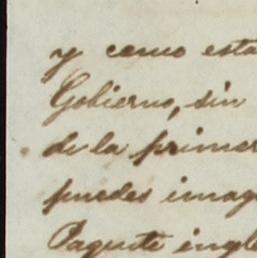 y como esta
Gobierno, sin
de la primer
puedes imag
Paquete ingle